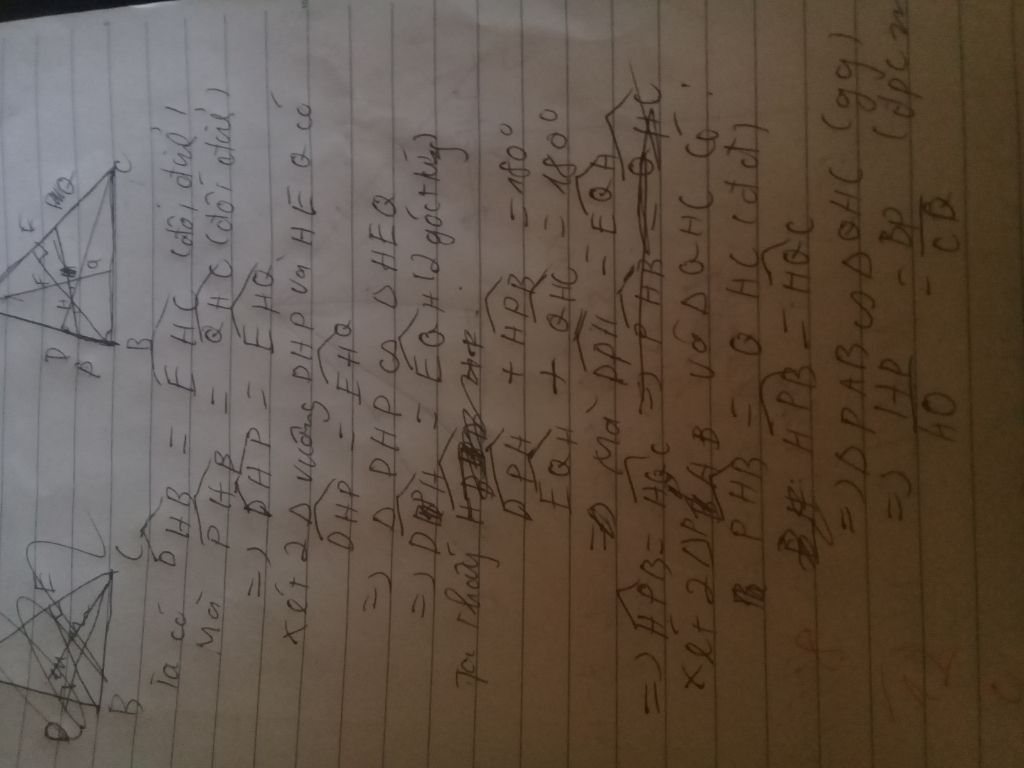 D
P
H
E
Q
B
C
B
C
Ta có DHB = EHC (đối đỉnh)
Mà PHB = QHC (đối đỉnh)
=) DHP = EHQ
xét 2 Δ vuông DHP và HEQ có
DHP = EHQ
=) Δ DHP ∽ Δ HEQ
=) DPH = EQH (2 góc tương
Ta thấy
DPH + HPB = 180°
EQH + QHC = 180°
Mà DPH = EQH
=) HPB = HQC
xét 2 Δ PHB và Δ QHC có:
PHB = QHC (đđ)
HPB = HQC
=) Δ PHB ∽ Δ QHC (gg)
=) HP / HQ = BP / CQ (đpcm